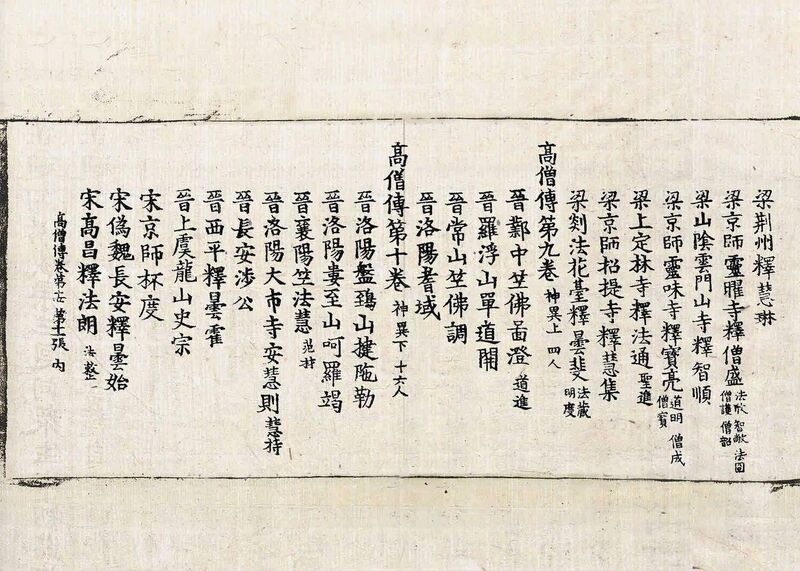 梁荆州釋慧琳
梁京師靈曜寺釋僧盛 法欣 智敞 法冏 僧護 僧韶
梁山陰雲門山寺釋智順
梁京師靈味寺釋寶亮 道明 僧成 僧寶
梁上定林寺釋法通 聖進
梁京師招提寺釋慧集
梁剡法花臺釋曇斐 法藏 明度
高僧傳第九卷 神異上 四人
晉鄴中竺佛啚澄 道進
晉羅浮山單道開
晉常山竺佛調
晉洛陽耆域
高僧傳第十卷 神異下 十六人
晉洛陽盤鵄山揵陁勒
晉洛陽婁至山呵羅竭
晉襄陽竺法慧 范材
晉洛陽大市寺安慧則 慧持
晉長安涉公
晉西平釋曇霍
晉上虞龍山史宗
宋京師杯度
宋偽魏長安釋曇始
宋高昌釋法朗 法整
高僧傳卷第 第十張 內